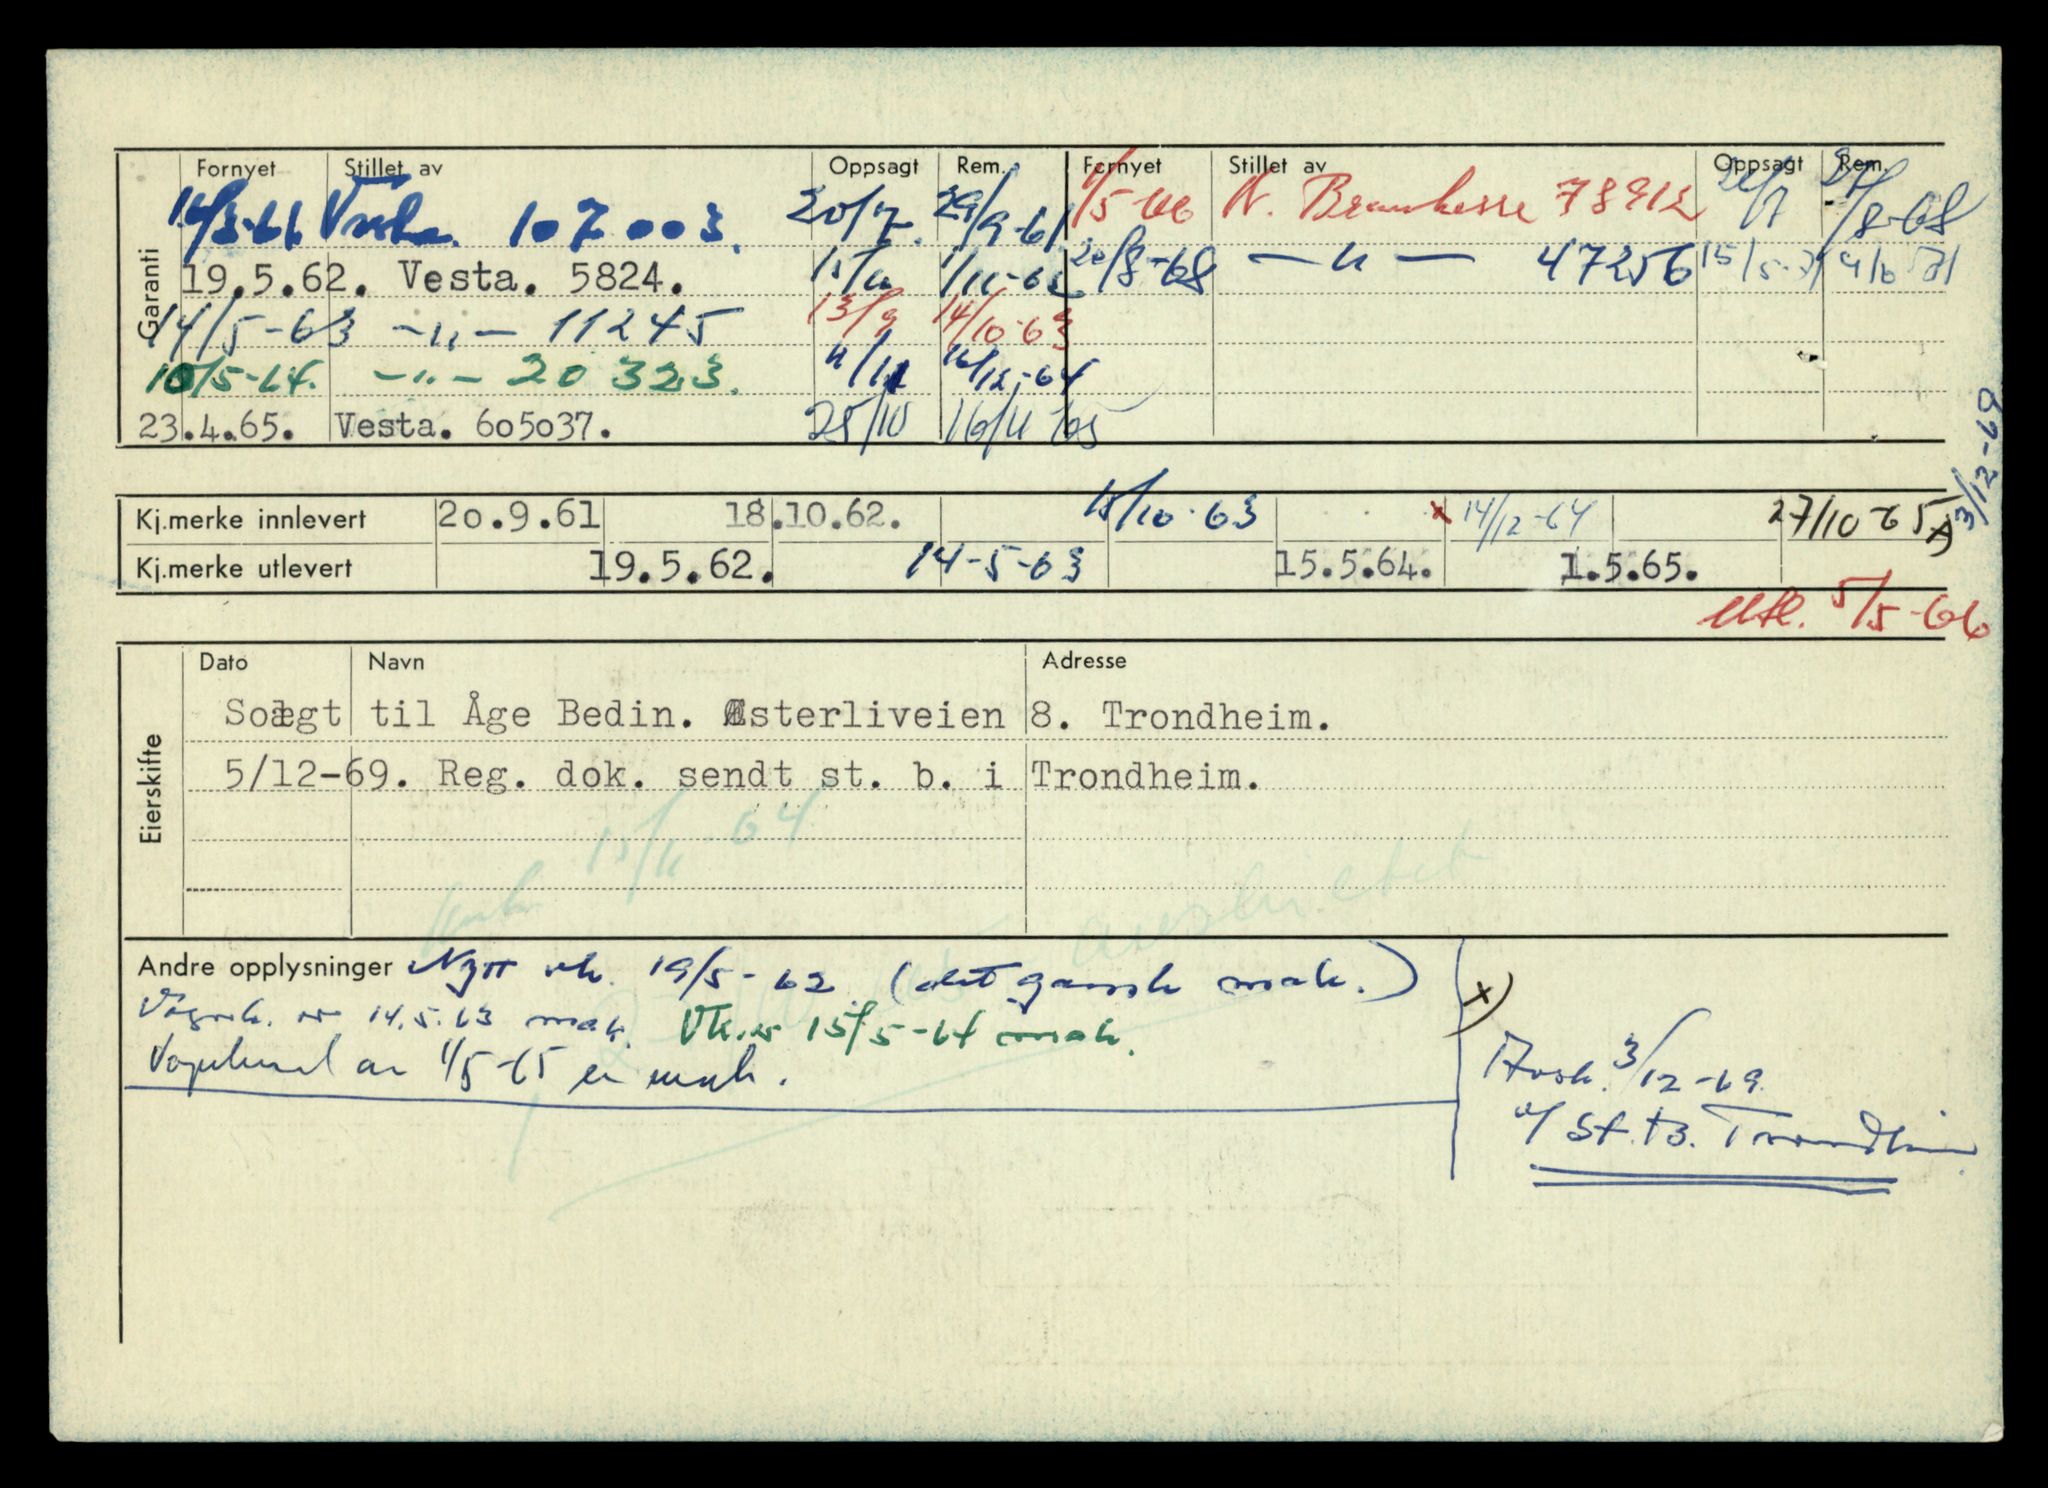 Fornyet Stillet av Oppsagt Rem. Fornyet Stillet av Oppsagt Rem.
Garanti
Vesta. 107003. 20/7. 29/9-61 N. Brannkasse 78912 /8-68
19.5.62. Vesta. 5824. 1/11-62 20/8-68 —"— 47256 15/5-71
14/5-63 —"— 11245 13/9 14/10-63
10/5-64. —"— 20323. 16/12-64
23.4.65. Vesta. 605037. 25/10 16/11-65
3/12-69
Kj.merke innlevert 20.9.61 18.10.62. 15/10-63 x 14/12-64 27/10-65
Kj.merke utlevert 19.5.62. 14-5-63 15.5.64. 1.5.65.
Utl. 5/5-66
Eierskifte
Dato Navn Adresse
Solgt til Åge Bedin. Østerliveien 8. Trondheim.
5/12-69. Reg. dok. sendt st. b. i Trondheim.
15/11-64
avskiltet
Andre opplysninger Nytt vk. 19/5-62 (det gamle mak.)
Vognk. av 14.5.63 mak. Vk. av 15/5-64 mak.
Vognkort av 1/5-65 er mak.
x)
Avsk. 3/12-69.
v/ St.b. Trondheim